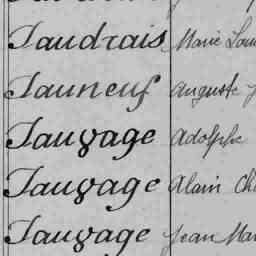 Saudrais Marie Lou
Sauneuf Auguste
Sauvage Adolphe
Sauvage Alain Ch
Sauvage Jean Mar